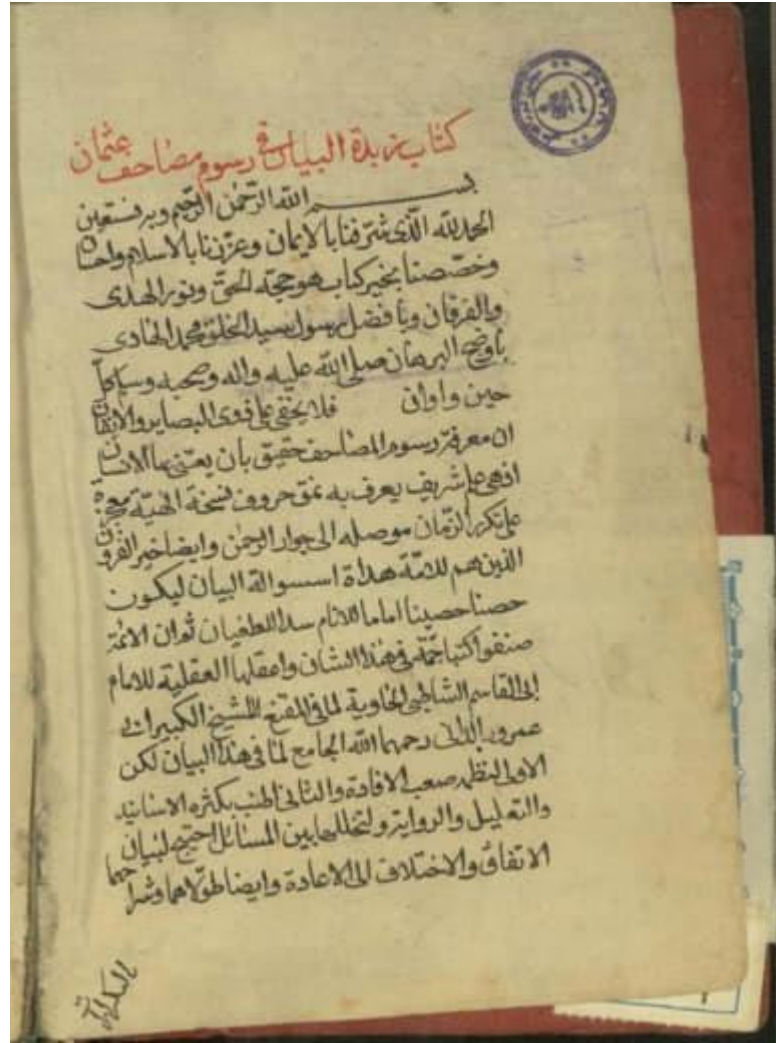 كتاب زبدة البيان في رسوم مصاحف عثمان
بسم الله الرحمن الرحيم وبه نستعين
الحمد لله الذي شرفنا بالايمان وعزنا بالاسلام واحسان
وخصصنا بخير كتاب هو حجة الحق ونور الهدى
والفرقان وبافضل رسول سيد الخلق محمد الهادى
باوضح البرهان صلى الله عليه واله وصحبه وسلم كل
حين واوان فلا يخفى على ذوى البصاير والاتقان
ان معرفة رسوم المصاحف حقيق بان يعتنى بها الانسان
اذ هى علم شريف يعرف به نمق حروف نسخة الهية معجزة
على تكرر الزمان موصله الى جوار الرحمن وايضا خير القرون
الذين هم للامة هداة اسسوا له البيان ليكون
حصنا حصينا اماما للانام سدا للطغيان ثم ان الائمة
صنفوا كتبا جمة فى هذا الشان واعقلها العقلية للامام
ابى القاسم الشاطبى الحاوية لما فى المقنع للشيخ الكبير ابى
عمرو الدانى رحمهما الله الجامع لما فى هذا البيان لكن
الاولى لنظمه صعب الافادة والثانى اطنب بكثرة الاسانيد
والتعليل والرواية ولتخللها بين المسائل احتيج لبيان
الاتفاق والاختلاف الى الاعادة وايضا طولاهما وشراحهما